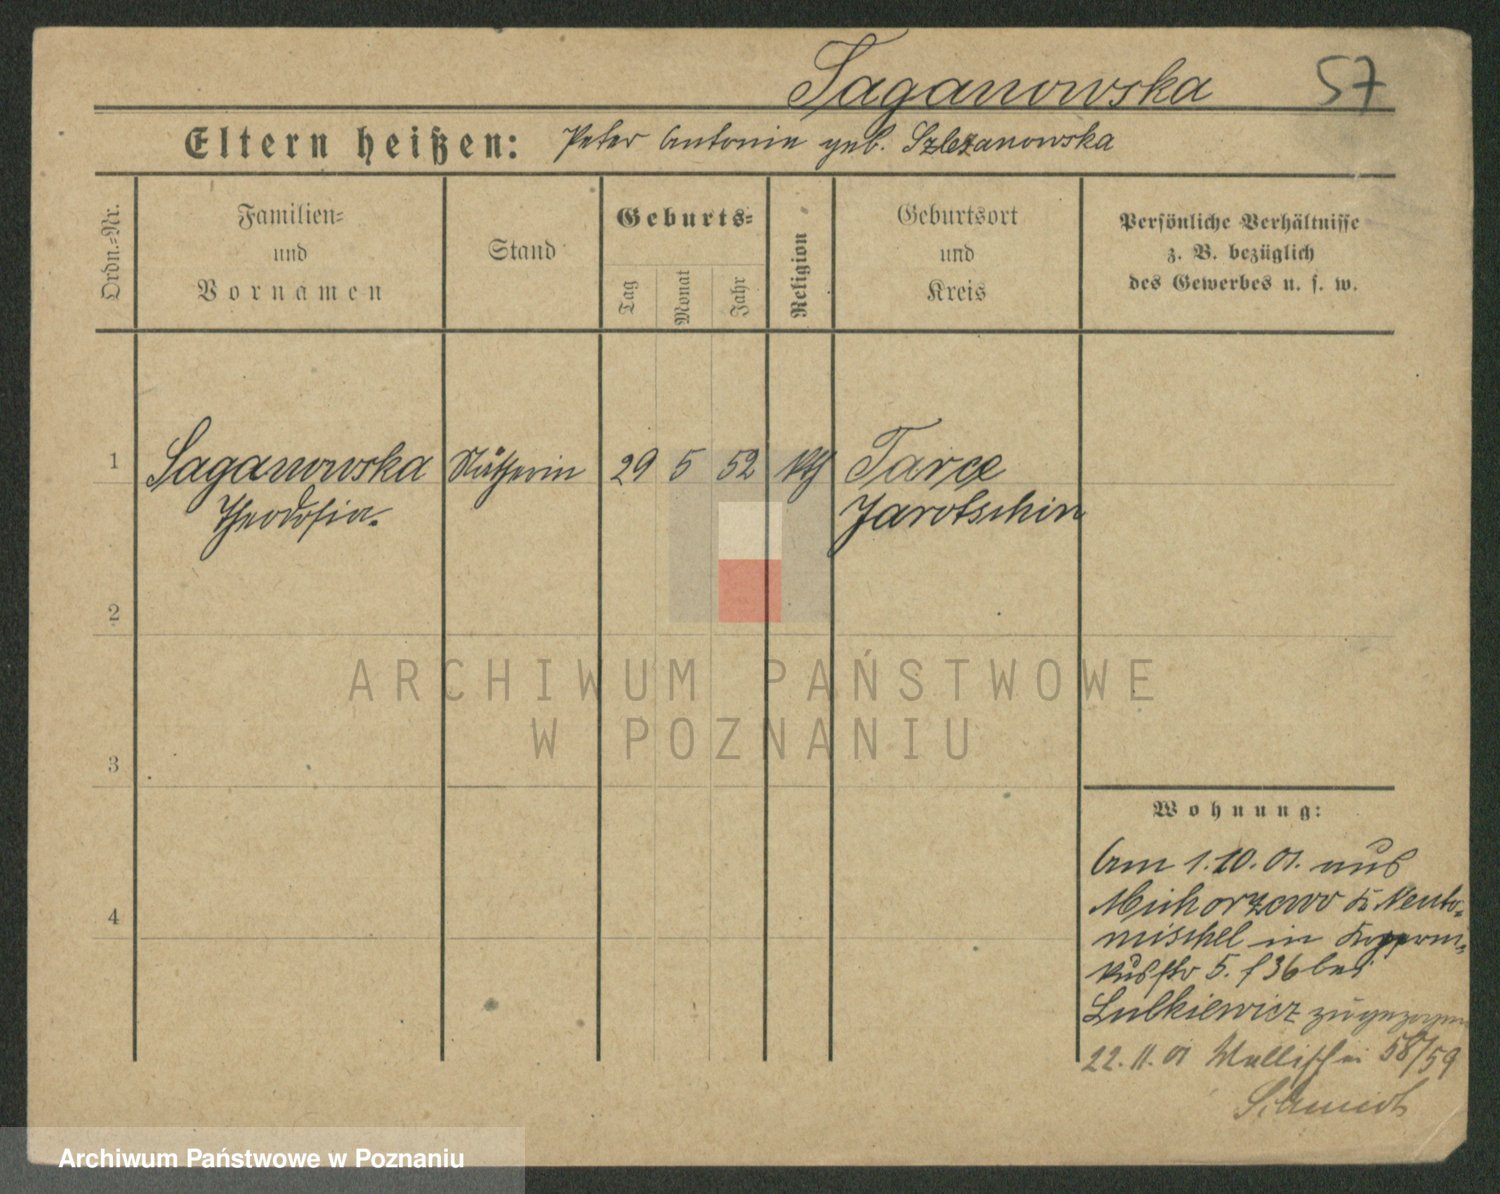 Saganowska 57
Eltern heißen: Peter Antonie geb. Szlezanowska
Ordn.=Nr.
Familien=
und
Vornamen
Stand
Geburts=
Tag
Monat
Jahr
Religion
Geburtsort
und
Kreis
Persönliche Verhältnisse
z. B. bezüglich
des Gewerbes u. s. w.
1 Saganowska Nätherin 29 5 52 kth Tarce
Theodosia. Jarotschin
2
3
4
ARCHIWUM PAŃSTWOWE
W POZNANIU
Wohnung:
Am 1.10.01. aus
Michorzewo Kr Neuto=
mischel in Koperni=
kusstr 5. bei
Lulkiewicz zugezogen
22.11.01 Wallischei 58/59
Schmidt
Archiwum Państwowe w Poznaniu